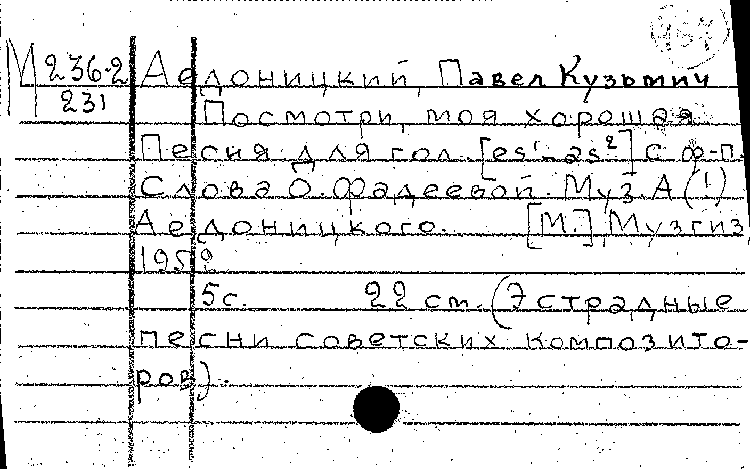 М 236-2 Аедоницкий, Павел Кузьмич
231 Посмотри, моя хорошая.
Песня для гол. [es¹-as²] с ф-п.
Слова О. Фадеевой. Муз. А(!)
Аедоницкого. [М.], Музгиз,
1959
5с. 22 см. (Эстрадные
песни советских композито-
ров).